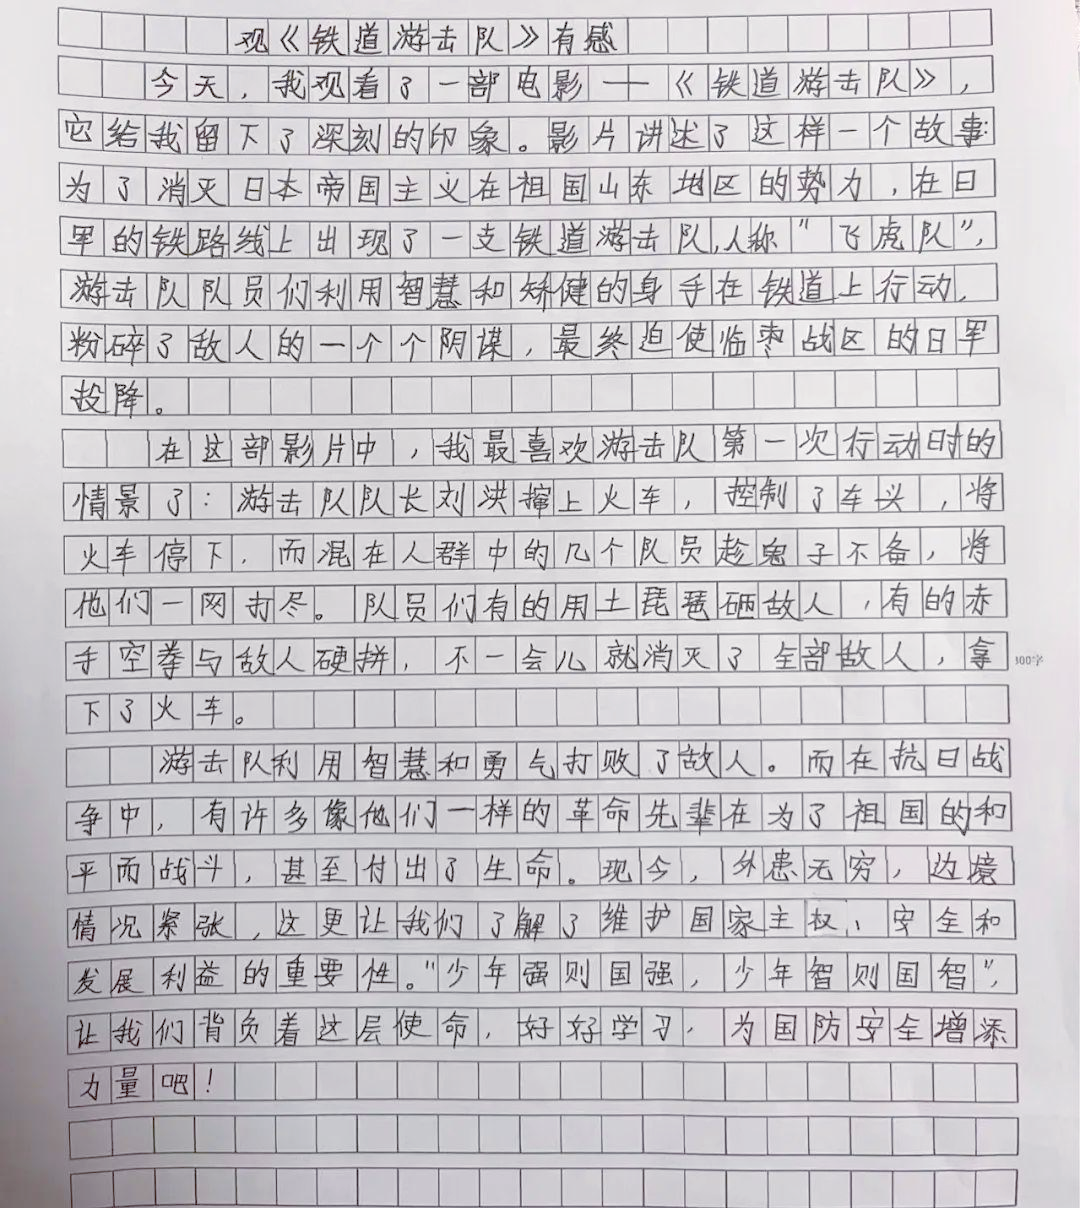 观《铁道游击队》有感
今天，我观看了一部电影——《铁道游击队》，
它给我留下了深刻的印象。影片讲述了这样一个故事:
为了消灭日本帝国主义在祖国山东地区的势力，在日
军的铁路线上出现了一支铁道游击队,人称"飞虎队",
游击队队员们利用智慧和矫健的身手在铁道上行动，
粉碎了敌人的一个个阴谋，最终迫使临枣战区的日军
投降。
在这部影片中，我最喜欢游击队第一次行动时的
情景了：游击队队长刘洪撺上火车，控制了车头，将
火车停下，而混在人群中的几个队员趁鬼子不备，将
他们一网打尽。队员们有的用土琵琶砸敌人，有的赤
手空拳与敌人硬拼，不一会儿就消灭了全部敌人，拿
300字
下了火车。
游击队利用智慧和勇气打败了敌人。而在抗日战
争中，有许多像他们一样的革命先辈在为了祖国的和
平而战斗，甚至付出了生命。现今，外患无穷，边境
情况紧张，这更让我们了解了维护国家主权、安全和
发展利益的重要性。"少年强则国强，少年智则国智",
让我们背负着这层使命，好好学习，为国防安全增添
力量吧！